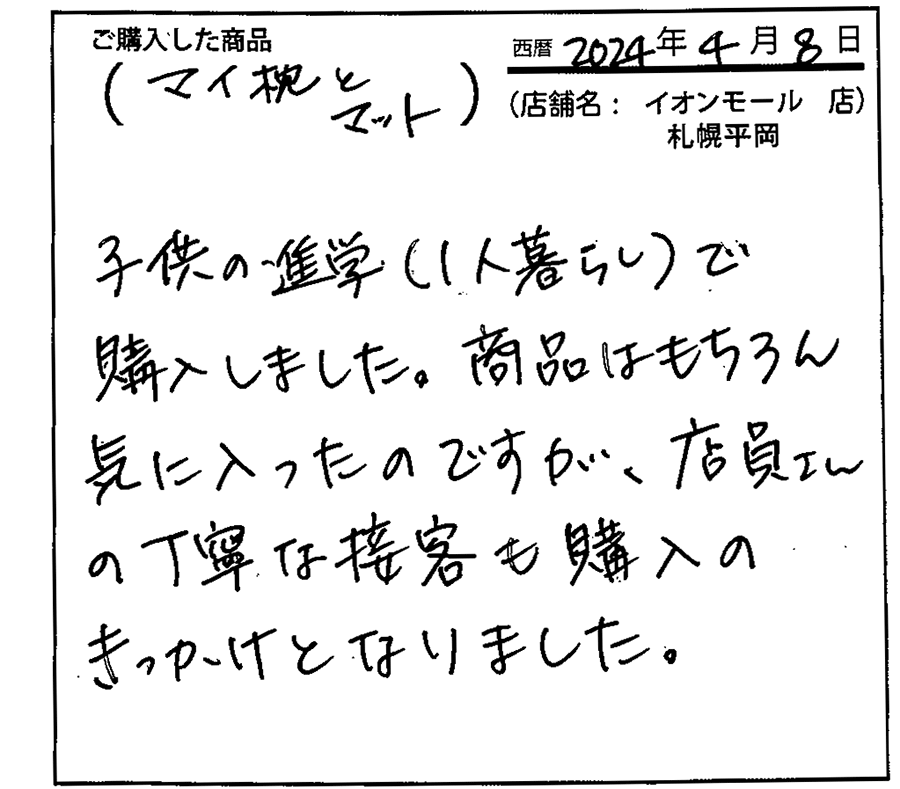 ご購入した商品
西暦 2024年4月8日
(マイ枕と
マット)
(店舗名: イオンモール 店)
札幌平岡
子供の進学(1人暮らし)で
購入しました。商品はもちろん
気に入ったのですが、店員さん
の丁寧な接客も購入の
きっかけとなりました。